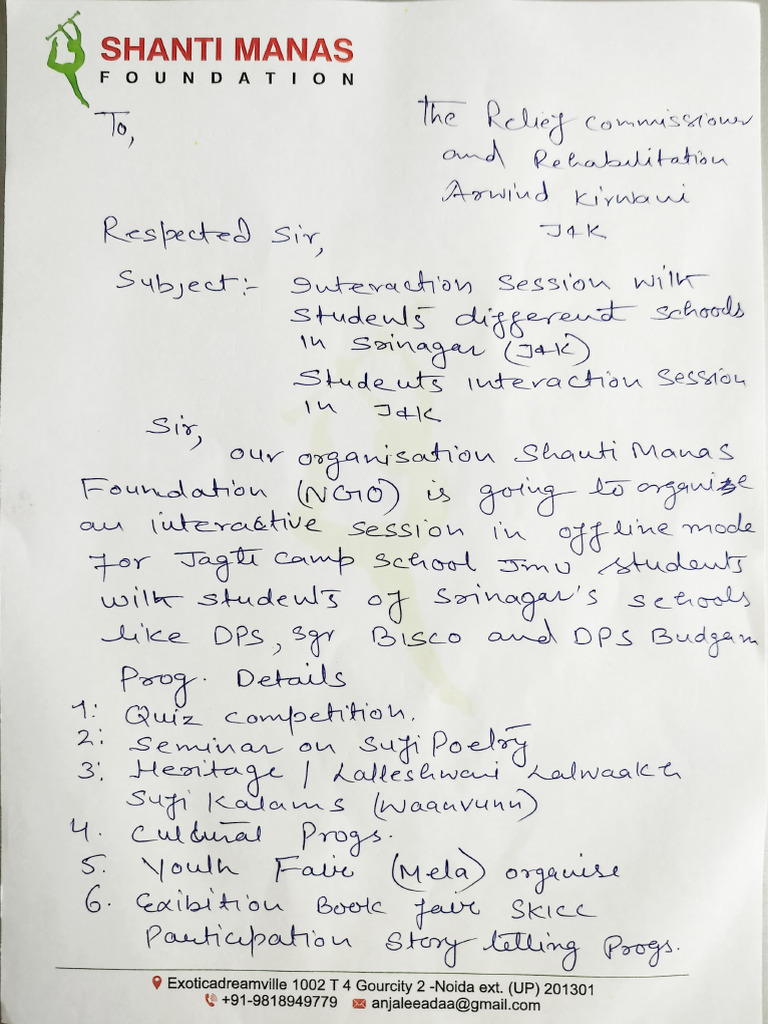 SHANTI MANAS
FOUNDATION
To,
The Relief Commissioner
and Rehabilitation
Arwind Kirwani
J&K
Respected Sir,
Subject:- Interaction Session with
Students different schools
in Srinagar (J&K)
Students interaction Session
in J&K
Sir,
our organisation Shanti Manas
Foundation (NGO) is going to organise
an interactive session in offline mode
for Jagti camp school Jmu students
with students of Srinagar's schools
like DPS, Sgr BISCO and DPS Budgam
Prog. Details
1: Quiz competition.
2: Seminar on Sufi Poetry
3: Heritage / Lalleshwani Lalwaakh
Sufi Kalams (Waanvunn)
4. Cultural Progs.
5. Youth Fair (Mela) organise
6. Exibition Book fair SKICC
Participation Story telling Progs.
Exoticadreamville 1002 T 4 Gourcity 2 -Noida ext. (UP) 201301
+91-9818949779 anjaleeadaa@gmail.com